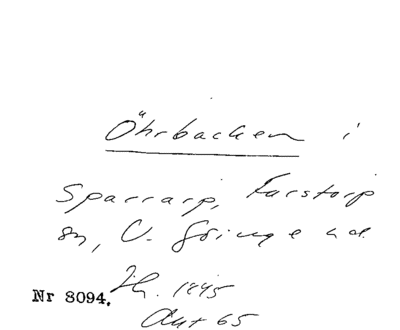 Öhrbacken i
Sparrarp, Farstorp
sn, V. Göinge hd.
Jh. 1895
Nr 8094.
Akt 65